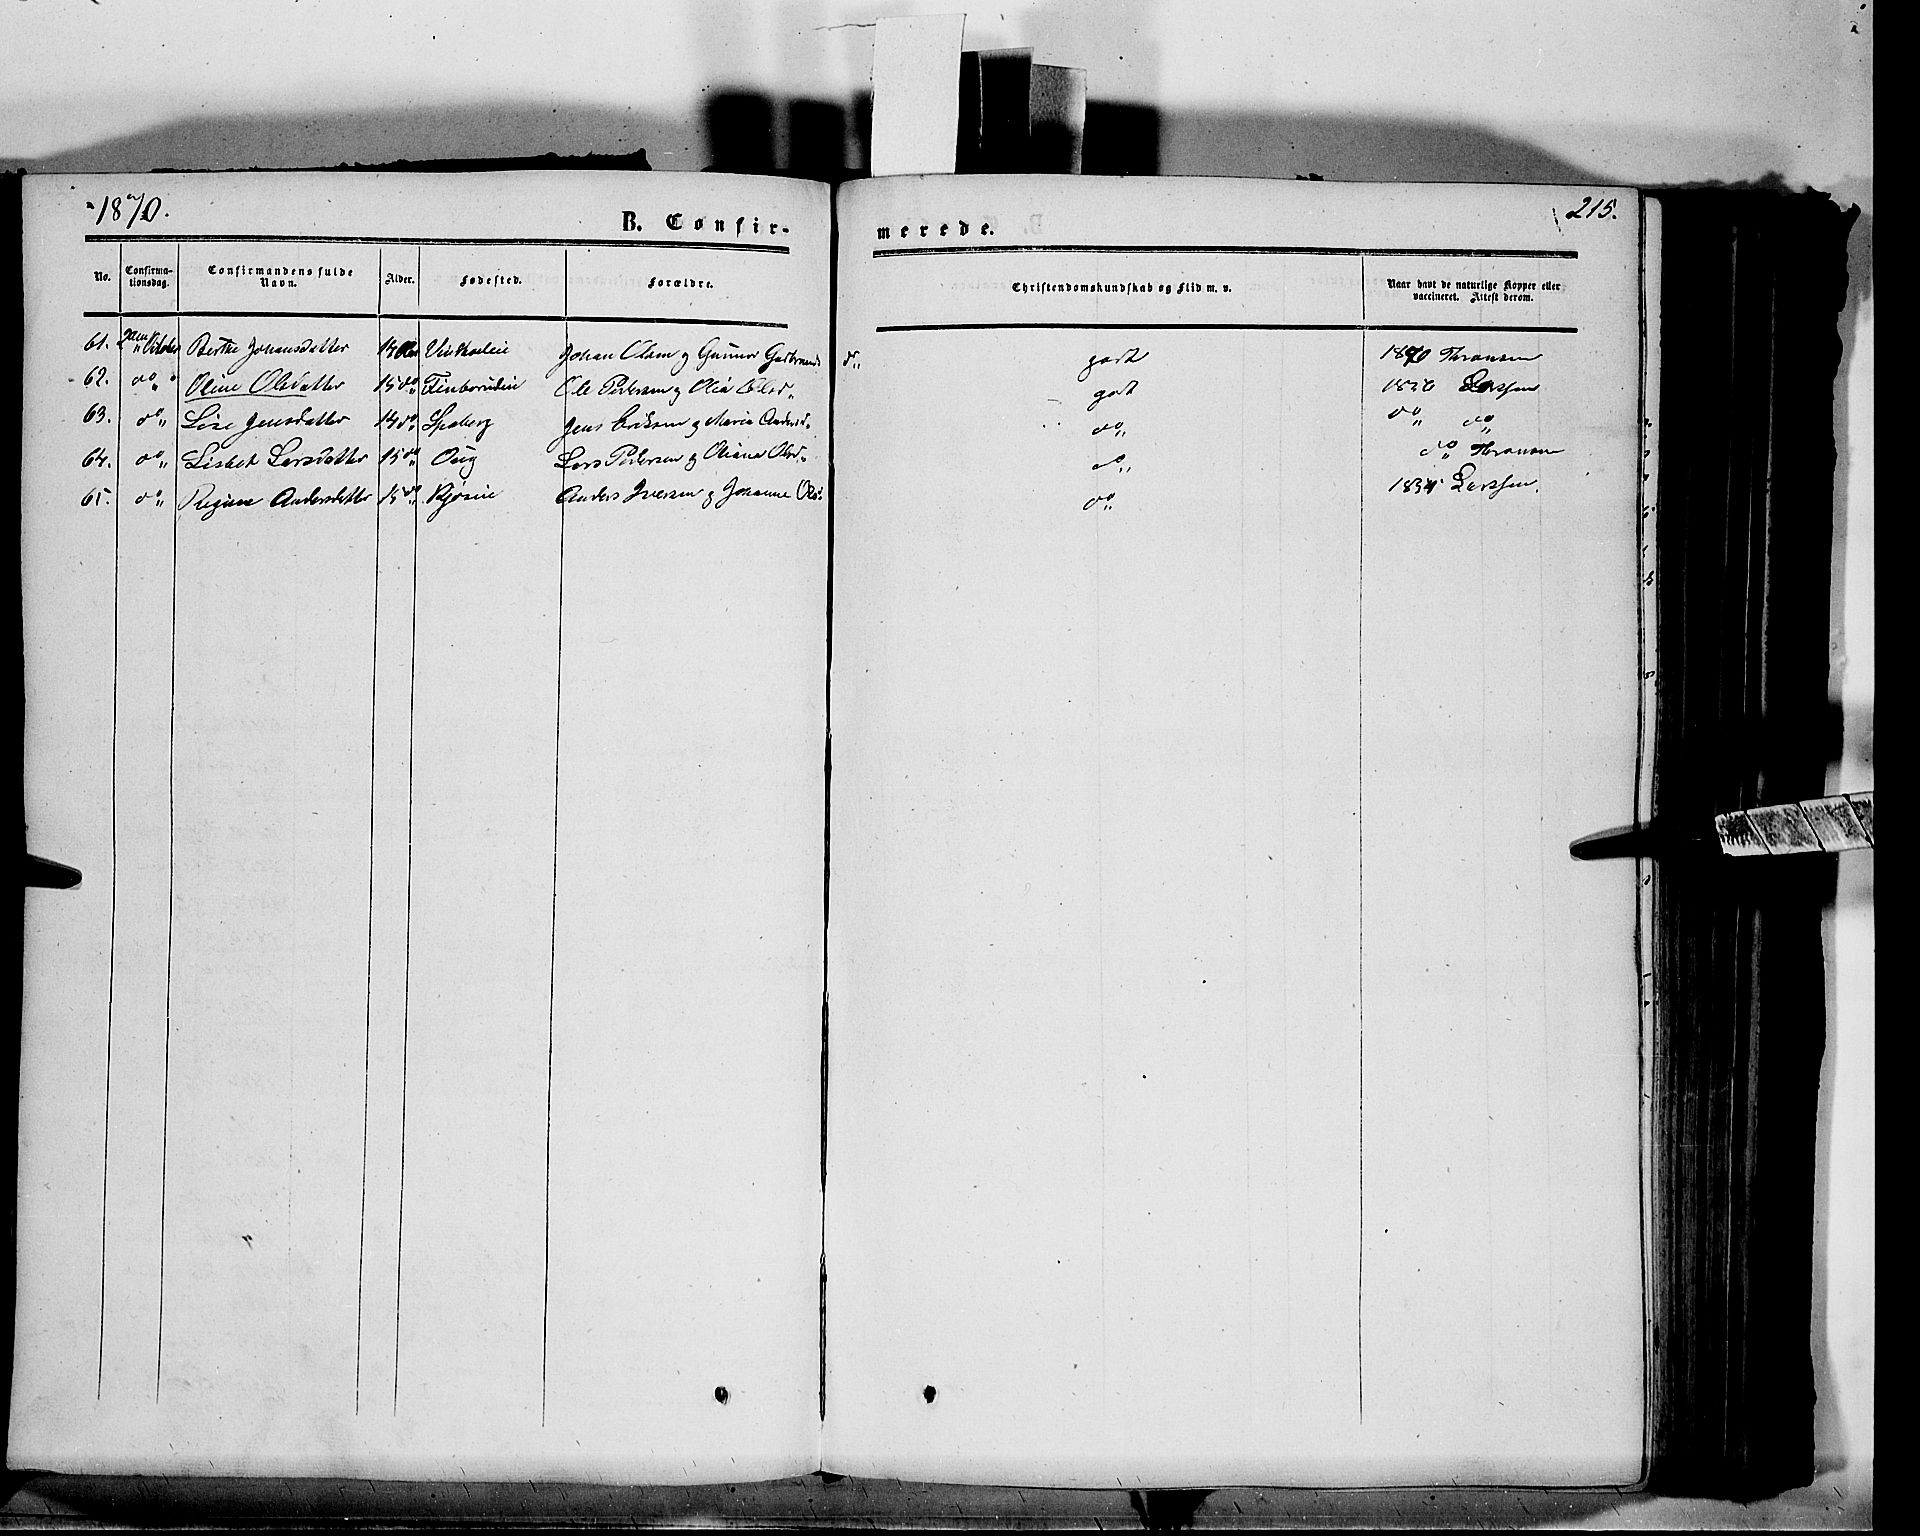 1870.
B. Confir-
merede.
215.
No. Confirma-tionsdag. Confirmandens fulde Navn. Alder. Fødested. Forældre. Christendomskundskab og Flid m. v. Naar havt de naturlige Kopper eller vaccineret. Attest derom.
61. 2den October Berthe Johansdatter 14 Johan Olsen og Gunnor Gudbrands d„ godt 1870 Thransen
62. do„ Oline Olsdatter 15 do Ole Pedersen og Olia Olsd„ godt 1856 Larssen
63. do„ Lise Jensdatter 14 do„ Spaberg Jens Eriksen og Maria Andersd„ do„ do„ do„
64. do„ Lisbet Larsdatter 15 do„ Oug Lars Pedersen og Oliana Olsd„ do„ do„ Thransen
65. do„ Regine Andersdatter 15 do„ Anders Iversen og Johanne Ols: do„ Larssen.